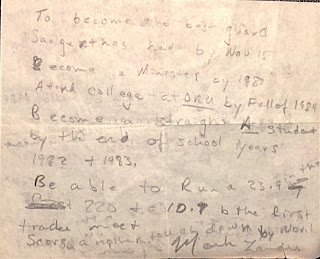 To become the best guard
has had by Nov 15
Become a Minister by 198
Attend college at ORU by Fall of 1984
Become a straight A student
by the end of school years
1982 + 1983.
Be able to Run a 23.9
220 + a 10.9 by the first
track meet
Score a touchdown by Nov. 1